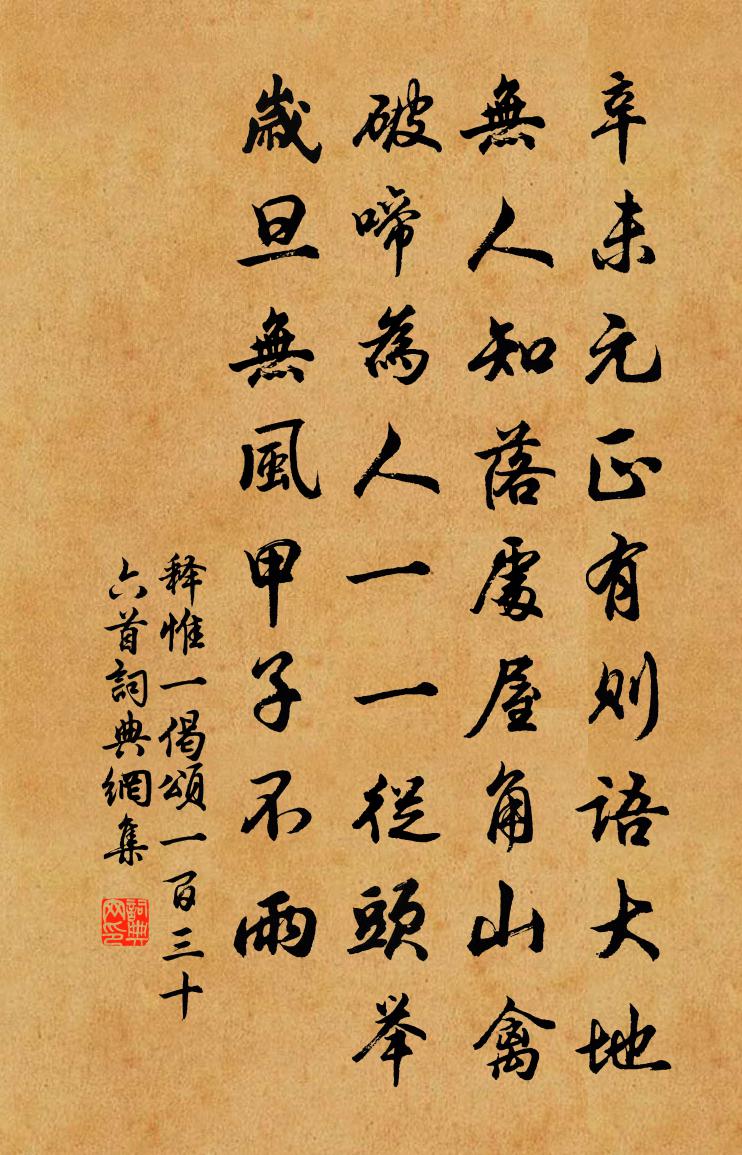 辛未元正有则語大地
無人知落處屋角山禽
破啼為人一一從頭举
歲旦無風甲子不雨
释惟一偈頌一百三十
六首詞典網集
詞典網印